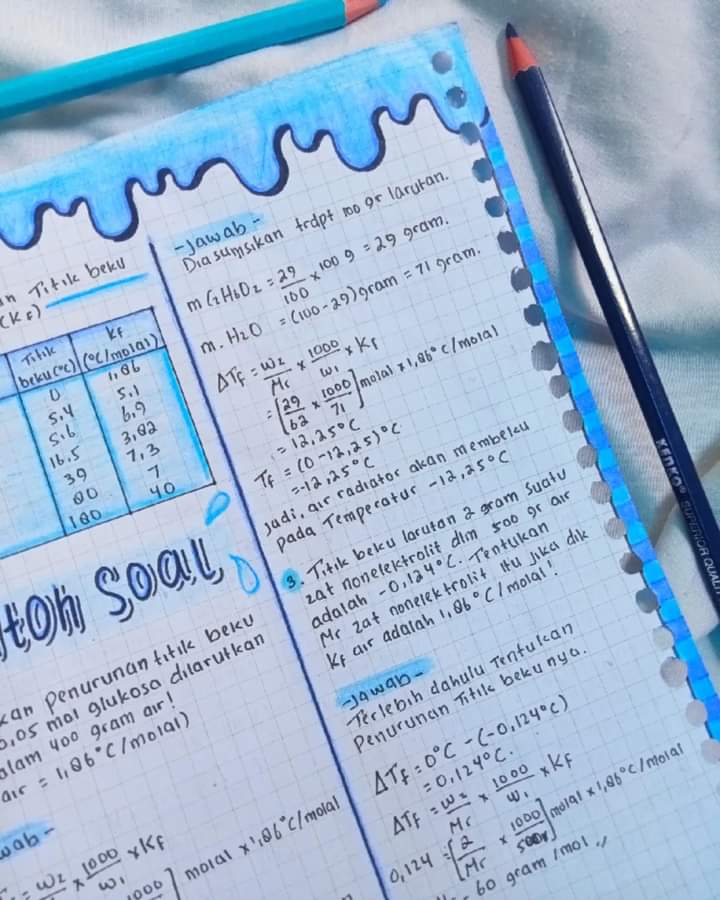 Titik beku
(Kf)
Titik beku (°C)
Kf (°C/molal)
0 1,86
5,4 5,1
5,6 6,9
16,5 3,82
39 7,3
80 7
180 40
toh Soal
kan penurunan titik beku
0,05 mol glukosa dilarutkan
alam 400 gram air!
air = 1,86°C/molal)
= w2 × 1000/w1 × Kf
molal × 1,86°C/molal
-jawab-
Diasumsikan trdpt 100 gr larutan.
m C2H6O2 = 29/100 × 100 g = 29 gram.
m. H2O = (100-29) gram = 71 gram.
ΔTf = w2/Mr × 1000/w1 × Kf
= [29/62 × 1000/71] molal × 1,86°C/molal
= 12,25°C
Tf = (0-12,25)°C
= -12,25°C
Jadi, air radiator akan membeku
pada Temperatur -12,25°C
3. Titik beku larutan 2 gram suatu
zat nonelektrolit dlm 500 gr air
adalah -0,124°C. Tentukan
Mr zat nonelektrolit itu jika dik
Kf air adalah 1,86°C/molal!
-jawab-
Terlebih dahulu Tentukan
Penurunan Titik beku nya.
ΔTf = 0°C - (-0,124°C)
= 0,124°C.
ΔTf = w2/Mr × 1000/w1 × Kf
0,124 = [2/Mr × 1000/500] molal × 1,86°C/molal
60 gram/mol
KENKO® SUPERIOR QUALIT